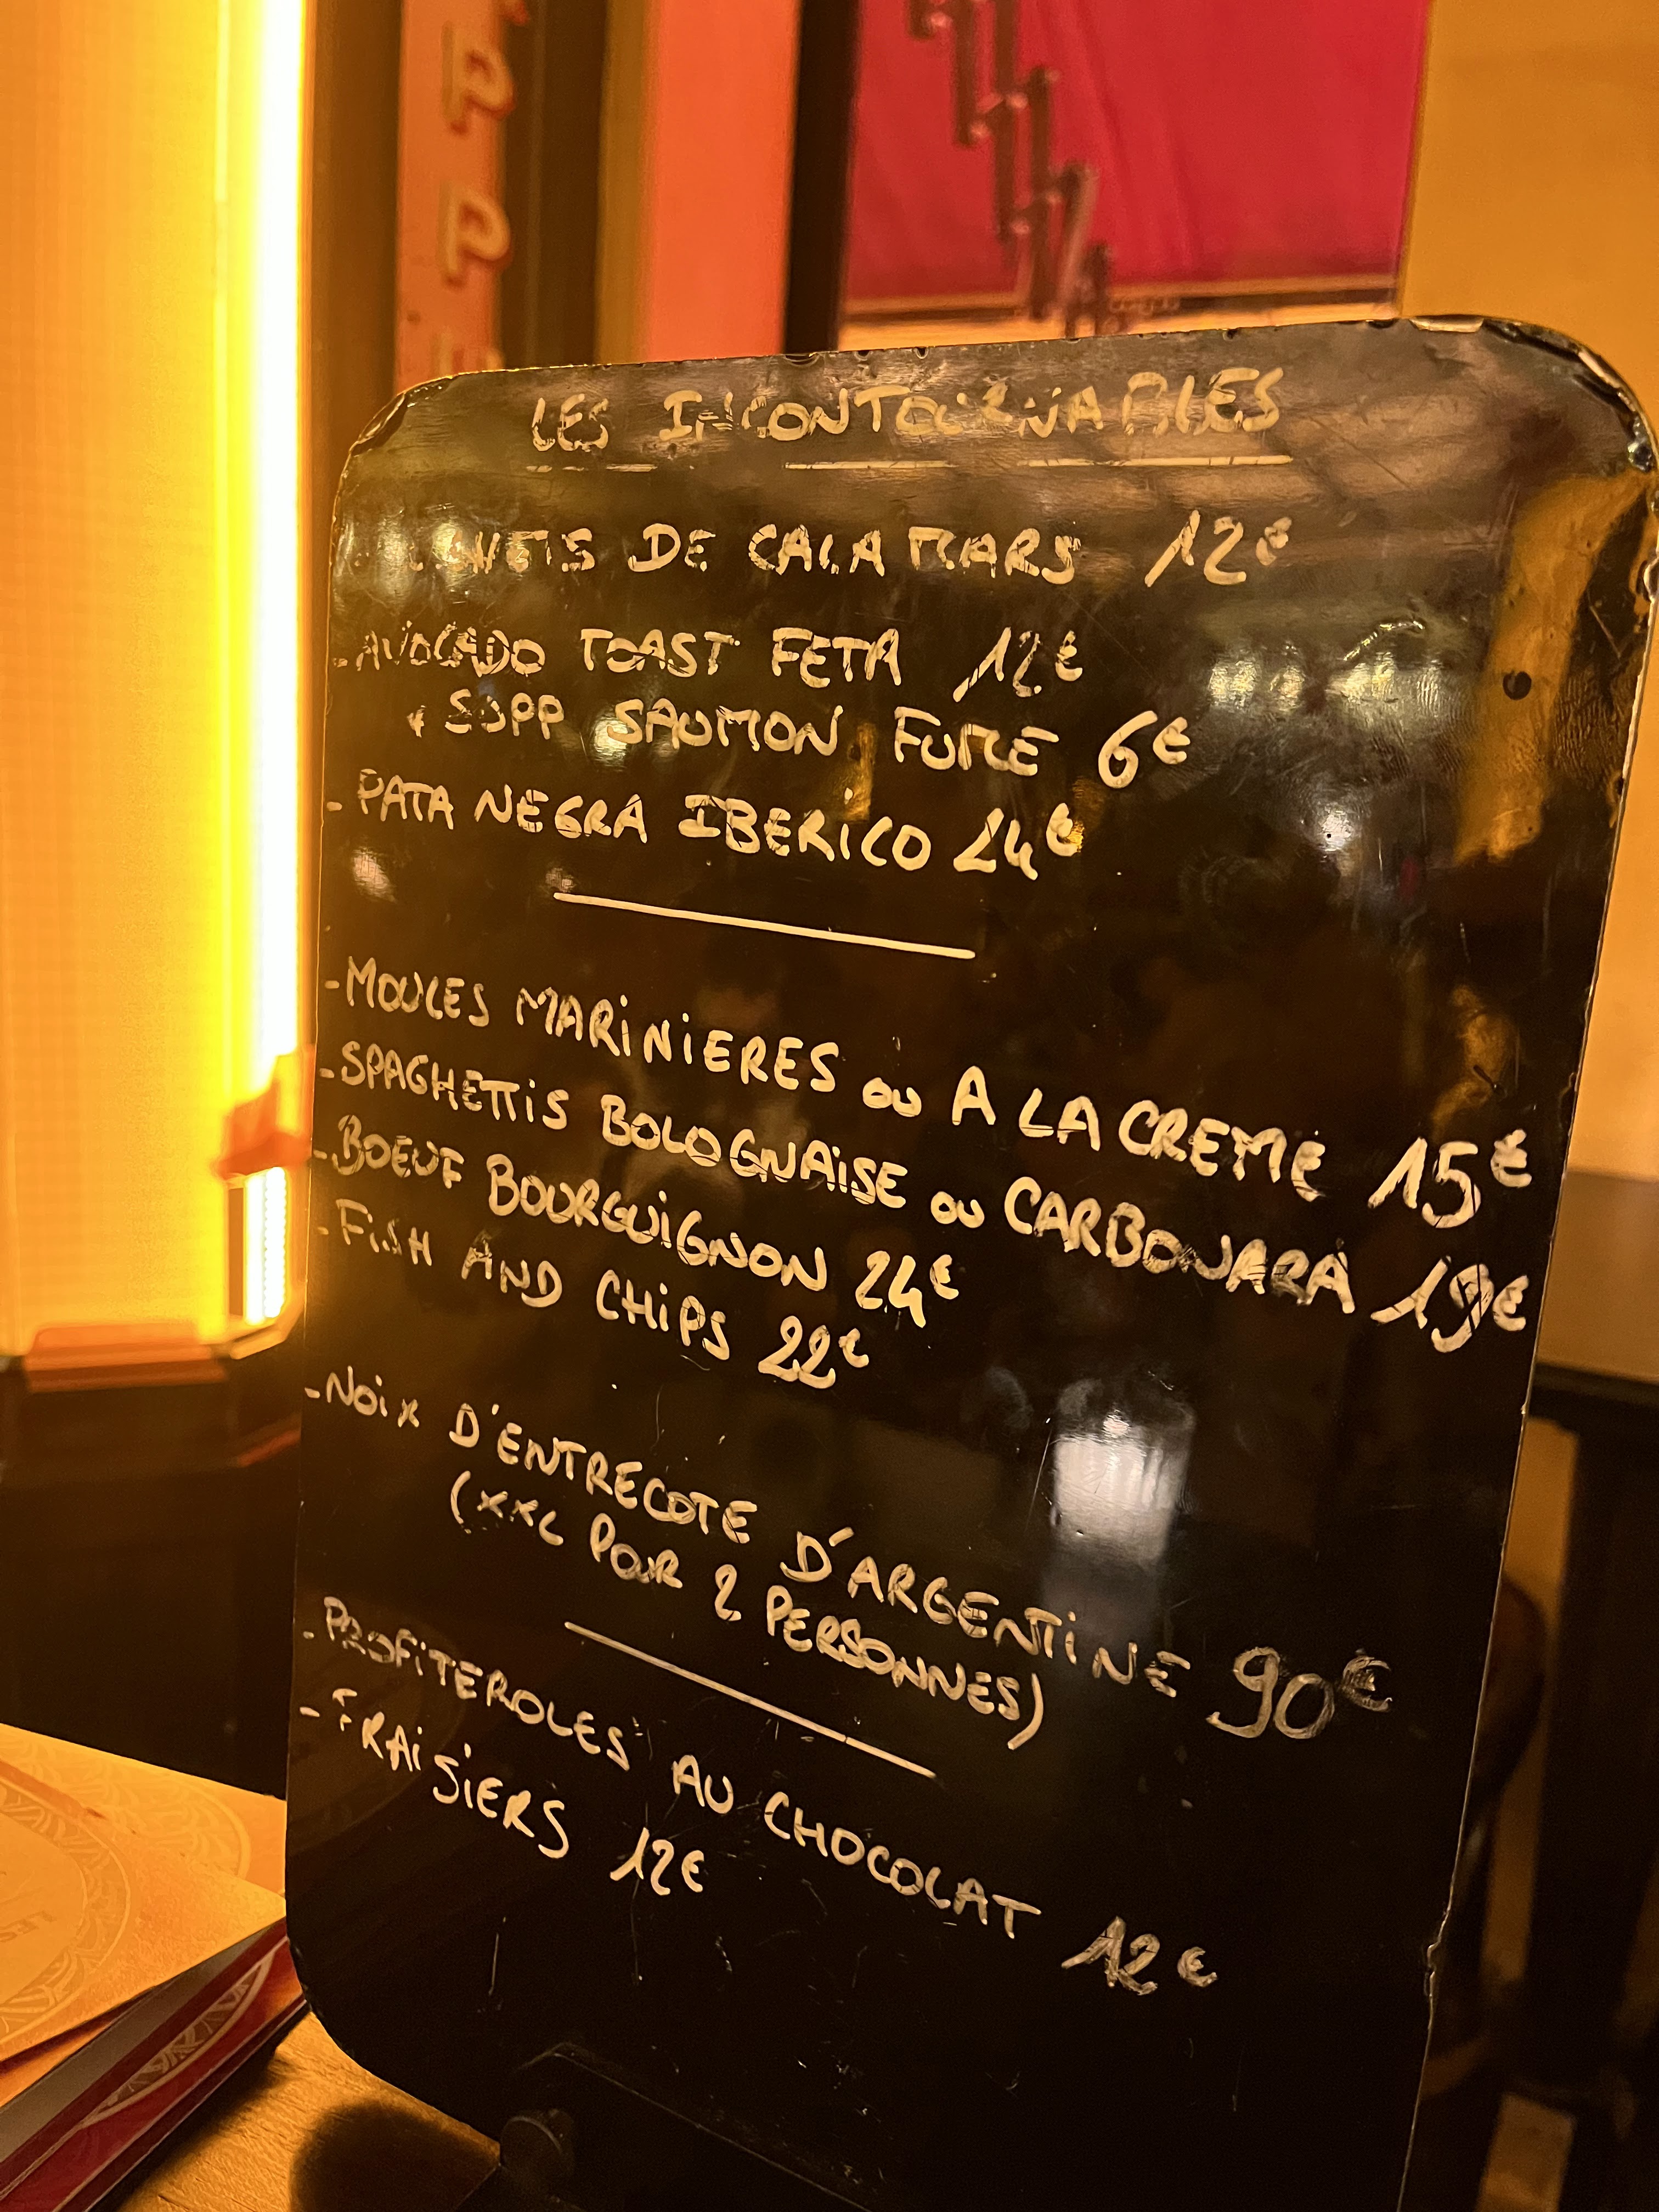 PP
LES INCONTOURNABLES
DE CALAMARS 12€
- AVOCADO TOAST FETA 12€
+ SUPP SAUMON FUME 6€
- PATA NEGRA IBERICO 24€
- MOULES MARINIERES ou A LA CREME 15€
- SPAGHETTIS BOLOGNAISE ou CARBONARA 19€
- BOEUF BOURGUIGNON 24€
- FISH AND CHIPS 22€
- NOIX D'ENTRECOTE D'ARGENTINE 90€
(XXL POUR 2 PERSONNES)
- PROFITEROLES AU CHOCOLAT 12€
- FRAISIERS 12€